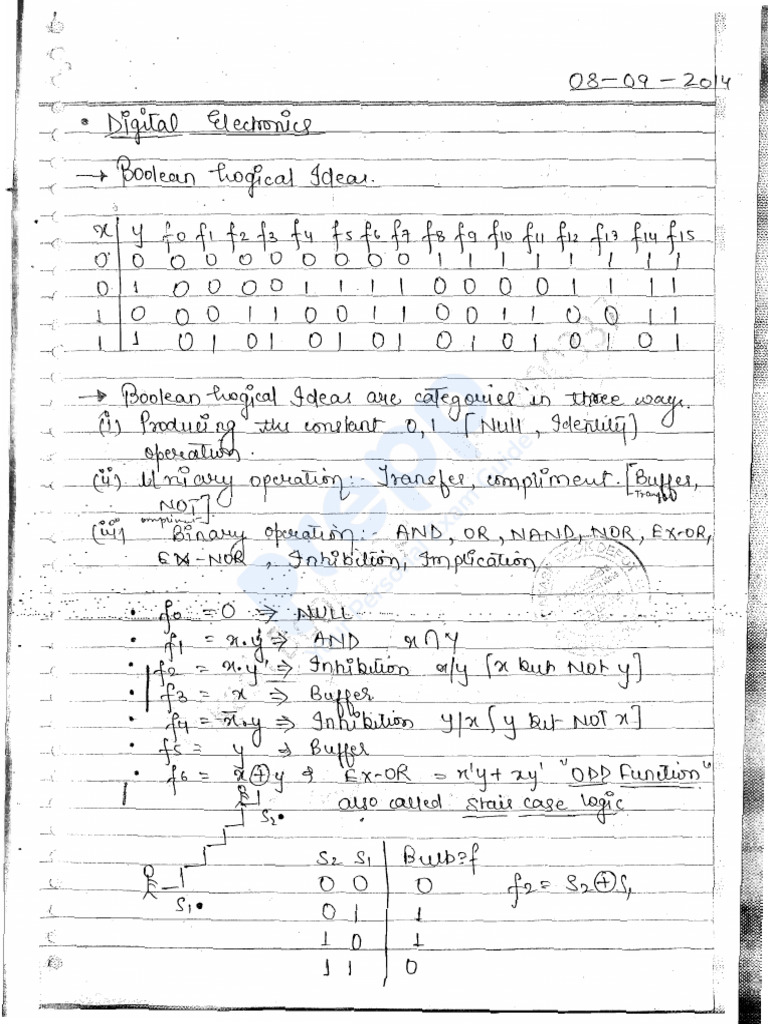 08-09-2014
• Digital Electronics
→ Boolean Logical Ideas.
x y f0 f1 f2 f3 f4 f5 f6 f7 f8 f9 f10 f11 f12 f13 f14 f15
0 0 0 0 0 0 0 0 0 0 1 1 1 1 1 1 1 1
0 1 0 0 0 0 1 1 1 1 0 0 0 0 1 1 1 1
1 0 0 0 1 1 0 0 1 1 0 0 1 1 0 0 1 1
1 1 0 1 0 1 0 1 0 1 0 1 0 1 0 1 0 1
→ Boolean Logical Ideas are categories in three ways.
(i) Producing the constant 0,1 [Null, Identity]
operation.
(ii) Uniary operation:- Transfer, compliment. [Buffer,
NOT]
(iii) Binary operation:- AND, OR, NAND, NOR, EX-OR,
EX-NOR, Inhibition, Implication
• f0 = 0 ⇒ NULL
• f1 = x.y ⇒ AND x∩y
• f2 = x.y' ⇒ Inhibition x/y [x but NOT y]
• f3 = x ⇒ Buffer
• f4 = x̄.y ⇒ Inhibition y/x [y but NOT x]
• f5 = y ⇒ Buffer
• f6 = x⊕y EX-OR = x'y + xy' "ODD Function"
also called stair case logic
S2
S1
S2 S1 Bulb?f
0 0 0 f2 = S2⊕S1
0 1 1
1 0 1
1 1 0
prepp
Your Personal Exam Guide